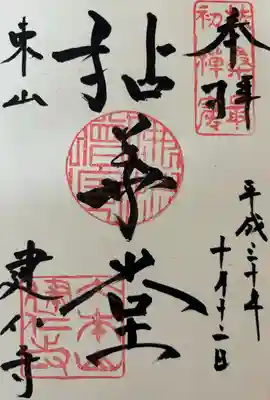 扶桑最
初禅窟
奉拝
平成三十年
十月十二日
拈華堂
東山
建仁寺
大本山
建仁寺